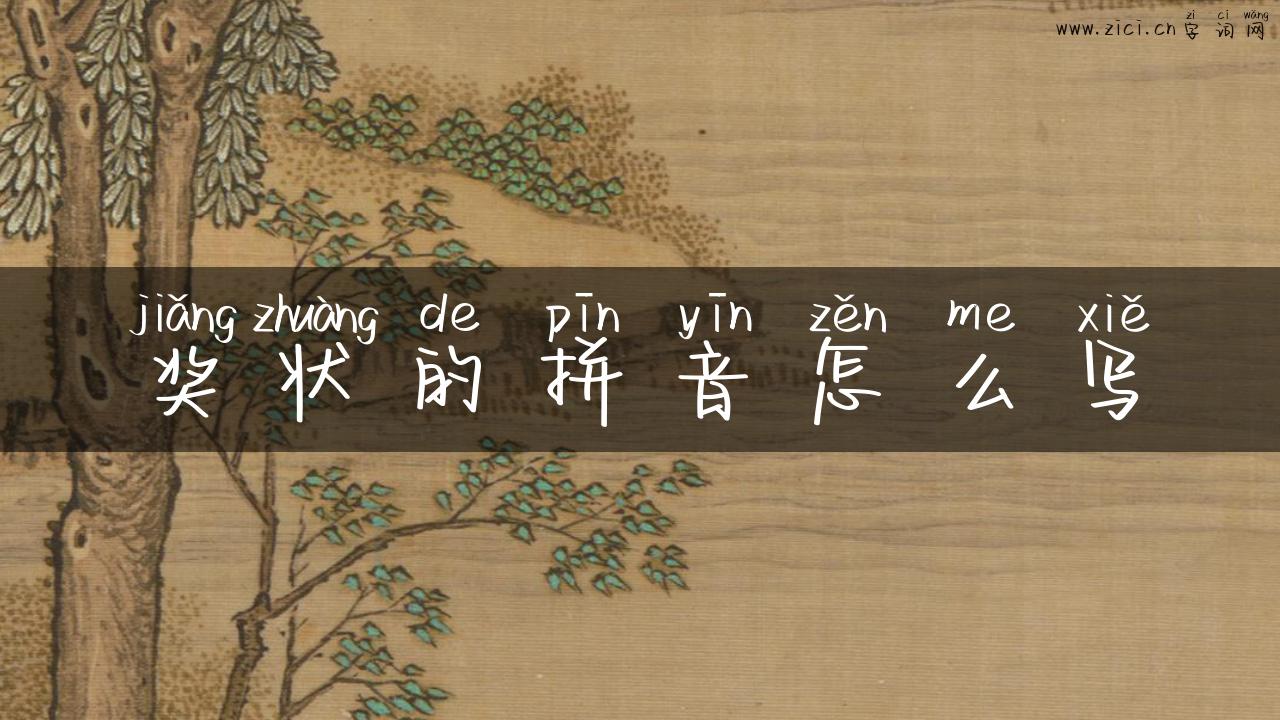 zì cí wǎng
www.zici.cn 字词网
jiǎng zhuàng de pīn yīn zěn me xiě
奖状的拼音怎么写